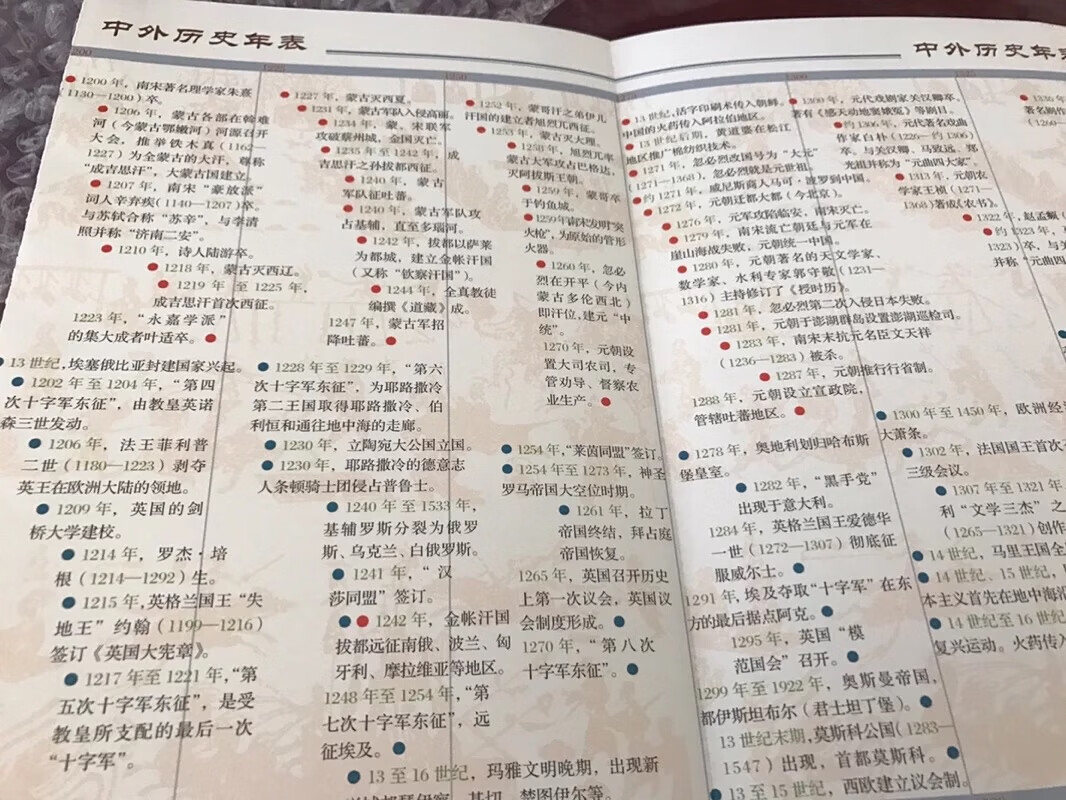 中外历史年表
1200
1200 年，南宋著名理学家朱熹
（1130—1200）卒。
1206 年，蒙古各部在斡难
河（今蒙古鄂嫩河）河源召开
大会，推举铁木真（1162—
1227）为全蒙古的大汗，尊称
“成吉思汗”，大蒙古国建立。
1207 年，南宋“豪放派”
词人辛弃疾（1140—1207）卒。
与苏轼合称“苏辛”，与李清
照并称“济南二安”。
1210 年，诗人陆游卒。
1218 年，蒙古灭西辽。
1219 年 至 1225 年，
成吉思汗首次西征。
1223 年，“永嘉学派”
的集大成者叶适卒。
13 世纪，埃塞俄比亚封建国家兴起。
1202 年至 1204 年，“第四
次十字军东征”，由教皇英诺
森三世发动。
1206 年，法王菲利普
二世（1180—1223）剥夺
英王在欧洲大陆的领地。
1209 年，英国的剑
桥大学建校。
1214 年，罗杰·培
根（1214—1292）生。
1215 年，英格兰国王“失
地王”约翰（1199—1216）
签订《英国大宪章》。
1217 年至 1221 年，“第
五次十字军东征”，是受
教皇所支配的最后一次
“十字军”。
1227 年，蒙古灭西夏。
1231 年，蒙古军队入侵高丽。
1234 年，蒙、宋联军
攻破蔡州城，金国灭亡。
1235 年至 1242 年，成
吉思汗之孙拔都西征。
1240 年，蒙古
军队征吐蕃。
1240 年，蒙古军队攻
占基辅，直至多瑙河。
1242 年，拔都以萨莱
为都城，建立金帐汗国
（又称“钦察汗国”）。
1244 年，全真教徒
编撰《道藏》成。
1247 年，蒙古军招
降吐蕃。
1228 年至 1229 年，“第六
次十字军东征”，为耶路撒冷
第二王国取得耶路撒冷、伯
利恒和通往地中海的走廊。
1230 年，立陶宛大公国立国。
1230 年，耶路撒冷的德意志
人条顿骑士团侵占普鲁士。
1240 年至 1533 年，
基辅罗斯分裂为俄罗
斯、乌克兰、白俄罗斯。
1241 年，“汉
莎同盟”签订。
1242 年，金帐汗国
拔都远征南俄、波兰、匈
牙利、摩拉维亚等地区。
1248 年至 1254 年，“第
七次十字军东征”，远
征埃及。
13 至 16 世纪，玛雅文明晚期，出现新
1250
1252 年，蒙哥汗之弟伊儿
汗国的建立者旭烈兀西征。
1253 年，蒙古灭大理。
1258 年，旭烈兀率
蒙古大军攻占巴格达，
灭阿拔斯王朝。
1259 年，蒙哥卒
于钓鱼城。
1259年南宋发明“突
火枪”，为原始的管形
火器。
1260 年，忽必
烈在开平（今内
蒙古多伦西北）
即汗位，建元“中
统”。
1270 年，元朝设
置大司农司，专
管劝导、督察农
业生产。
1254 年，“莱茵同盟”签订。
1254 年至 1273 年，神圣
罗马帝国大空位时期。
1261 年，拉丁
帝国终结，拜占庭
帝国恢复。
1265 年，英国召开历史
上第一次议会，英国议
会制度形成。
1270 年，“第 八 次
十字军东征”。
中外历史年表
13 世纪，活字印刷术传入朝鲜。
中国的火药传入阿拉伯地区。
13 世纪后期，黄道婆在松江
地区推广棉纺织技术。
1271 年，忽必烈改国号为“大元”
（1271—1368），忽必烈就是元世祖。
约 1271 年，威尼斯商人马可·波罗到中国。
1272 年，元朝迁都大都（今北京）。
1276 年，元军攻陷临安，南宋灭亡。
1279 年，南宋流亡朝廷与元军在
崖山海战失败，元朝统一中国。
1280 年，元朝著名的天文学家、
数学家、水利专家郭守敬（1231—
1316）主持修订了《授时历》。
1281 年，忽必烈第二次入侵日本失败。
1281 年，元朝于澎湖群岛设置澎湖巡检司。
1283 年，南宋末抗元名臣文天祥
（1236—1283）被杀。
1287 年，元朝推行行省制。
1288 年，元朝设立宣政院，
管辖吐蕃地区。
1278 年，奥地利划归哈布斯
堡皇室。
1282 年，“黑手党”
出现于意大利。
1284 年，英格兰国王爱德华
一世（1272—1307）彻底征
服威尔士。
1291 年，埃及夺取“十字军”在东
方的最后据点阿克。
1295 年，英国“模
范国会”召开。
1299 年至 1922 年，奥斯曼帝国，
都伊斯坦布尔（君士坦丁堡）。
13 世纪末期，莫斯科公国（1283—
1547）出现，首都莫斯科。
13 至 15 世纪，西欧建立议会制。
1300
1300 年，元代戏剧家关汉卿卒，
著有《感天动地窦娥冤》等剧目。
约 1306 年，元代著名戏曲
作家白朴（1226—约 1306）
卒。与关汉卿、马致远、郑
光祖并称为“元曲四大家”。
1313 年，元朝农
学家王祯（1271—
1368）著成《农书》。
1322 年，赵孟頫
约 1323 年，
1323）卒，与关
并称“元曲四
1300 年至 1450 年，欧洲经
大萧条。
1302 年，法国国王首次
三级会议。
1307 年至 1321 年
利“文学三杰”之
（1265—1321）创作
14 世纪，马里王国全
14 世纪、15 世纪，
本主义首先在地中海沿
14 世纪至 16 世纪
复兴运动。火药传入
1330 年
著名剧作
（1260—